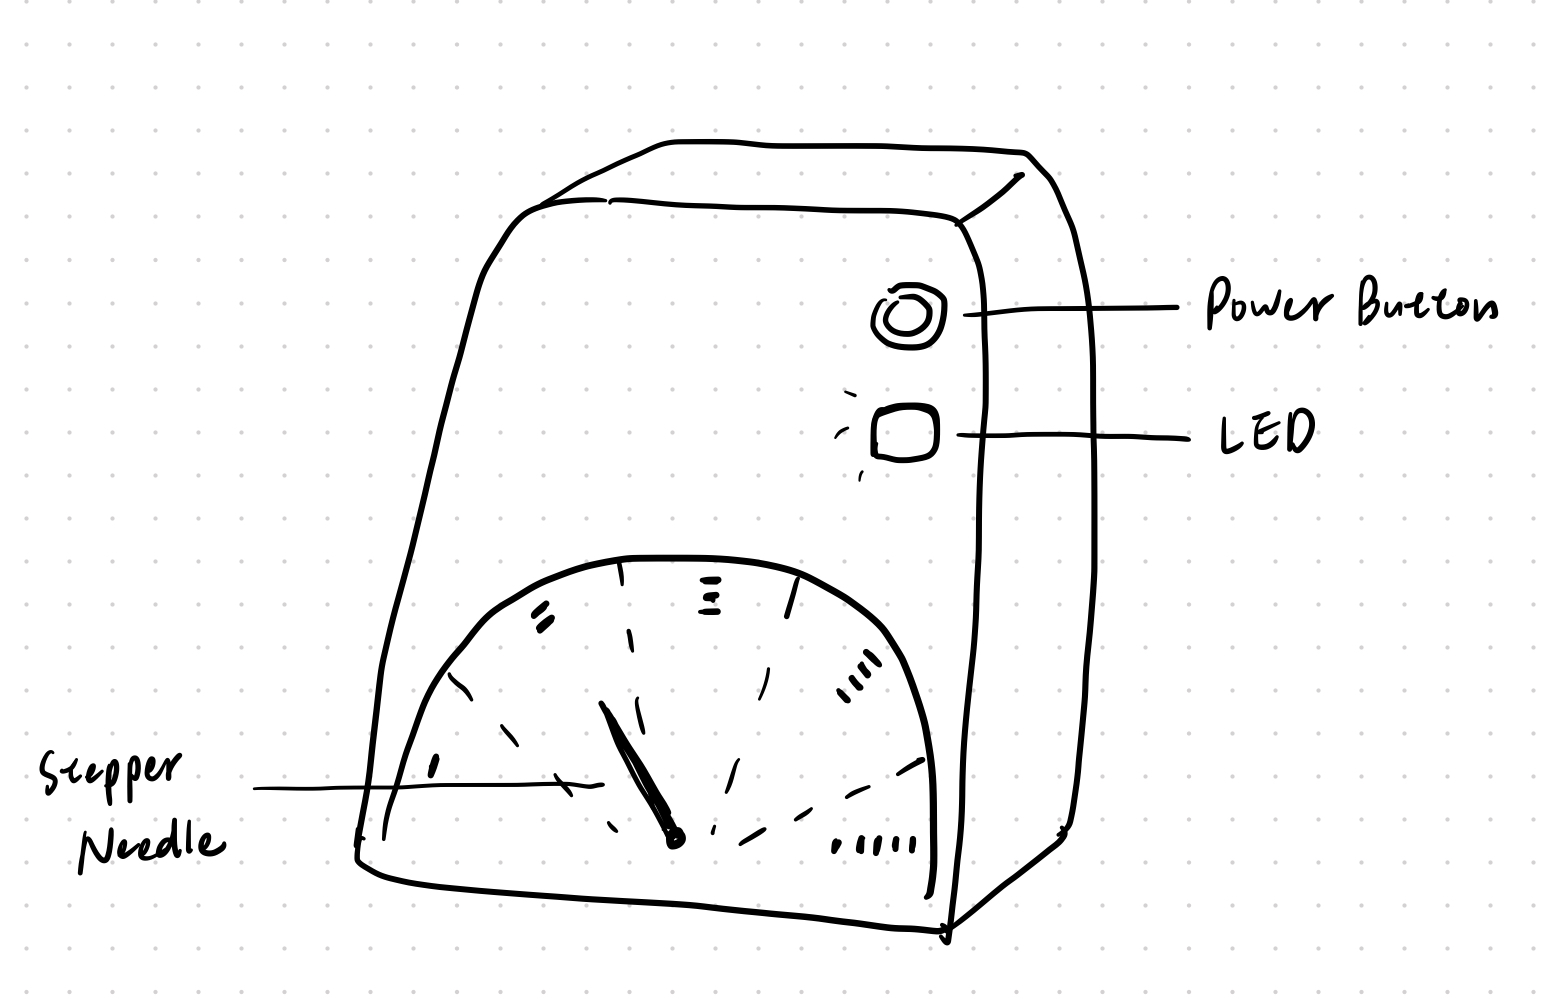 Power Button
LED
Stepper
Needle